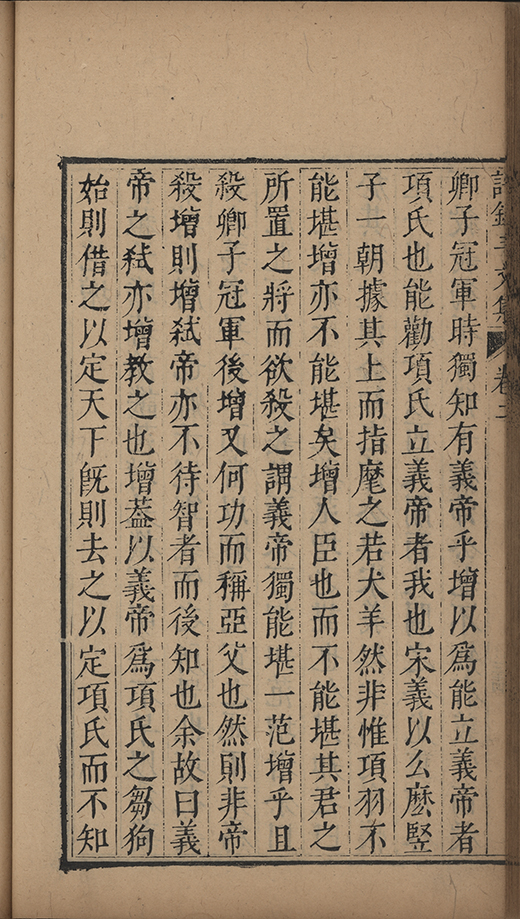 卿子冠軍時獨知有義帝乎增以爲能立義帝者
項氏也能勸項氏立義帝者我也宋義以么麽竪
子一朝據其上而指麾之若犬羊然非惟項羽不
能堪增亦不能堪矣增人臣也而不能堪其君之
所置之將而欲殺之謂義帝獨能堪一范增乎且
殺卿子冠軍後增又何功而稱亞父也然則非帝
殺增則增弑帝亦不待智者而後知也余故曰義
帝之弑亦增教之也增葢以義帝爲項氏之芻狗
始則借之以定天下旣則去之以定項氏而不知